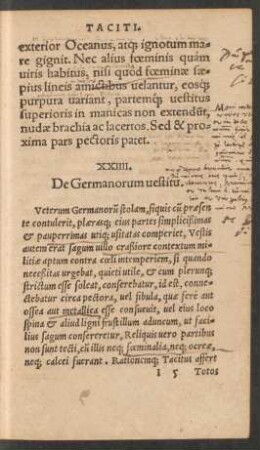 TACITI.
exterior Oceanus, atq; ignotum ma
re gignit. Nec alius fœminis quàm
uiris habitus, nisi quòd fœminæ sæ
pius lineis amictibus uelantur, eosq;
purpura uariant, partemq; uestitus
superioris in manicas non extendũt,
nudæ brachia ac lacertos. Sed & pro
xima pars pectoris patet.
XXIIII.
De Germanorum uestitu.
Veterum Germanorũ stolam, siquis cũ præsen
te contulerit, plærasq; eius partes simplicissimas
& pauperrimas utiq; usitatas comperiet. Vestis
autem erat sagum uillo crassiore contextum mi-
litiæ aptum contra cœli intemperiem, si quando
necessitas urgebat, quieti utile, & cum plerunq;
strictum esse soleat, conserebatur, id est, conne-
ctebatur circa pectora, uel fibula, quæ ferè aut
ossea aut metallica esse consueuit, uel eius loco
spina & aliud ligni frustillum aduncum, ut faci-
lius sagum consereretur, Reliquis uero partibus
non sunt tecti, cũ illis neq; fœminalia, neq; ocreæ,
neq; calcei fuerant. Rationemq; Tacitus affert
I 5 Totos